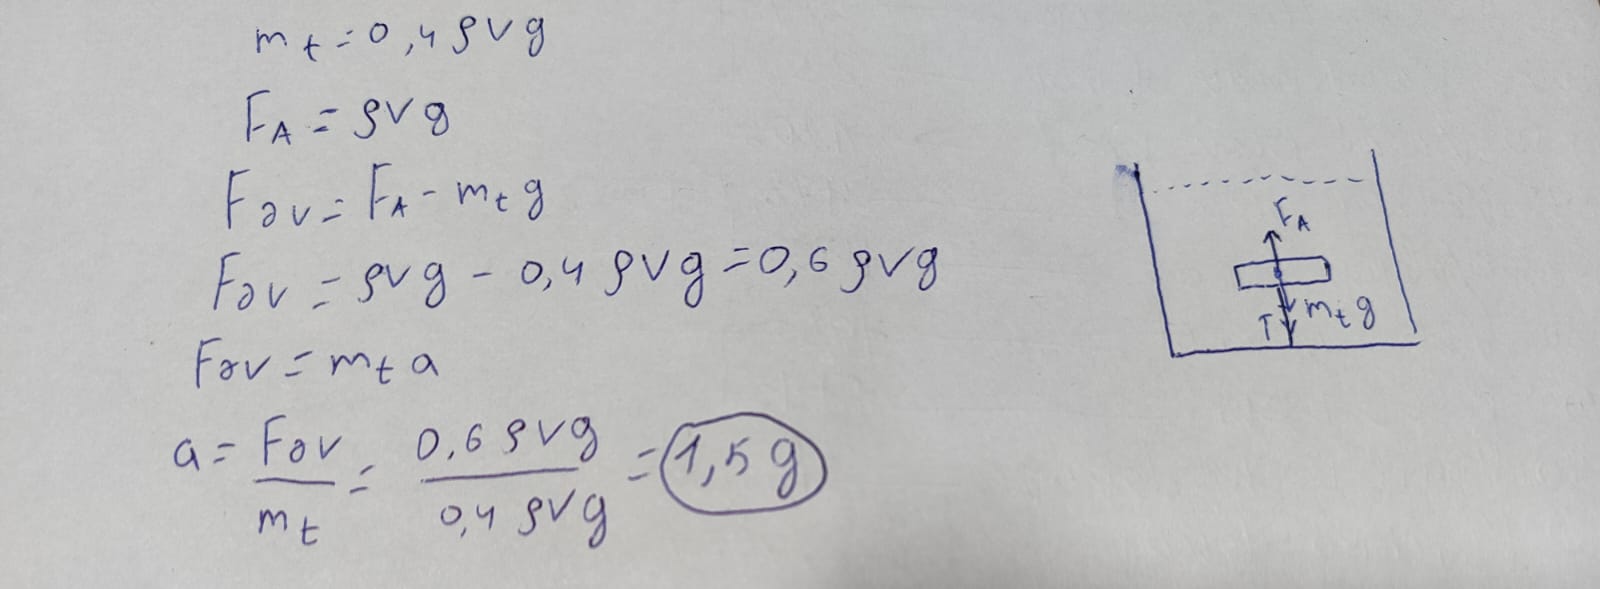 m_t = 0,4 ρVg
F_A = ρVg
F_av = F_A - m_t g
F_av = ρVg - 0,4 ρVg = 0,6 ρVg
F_av = m_t a
a = F_av / m_t = 0,6 ρVg / 0,4 ρVg = 1,5 g
F_A
m_t g
T